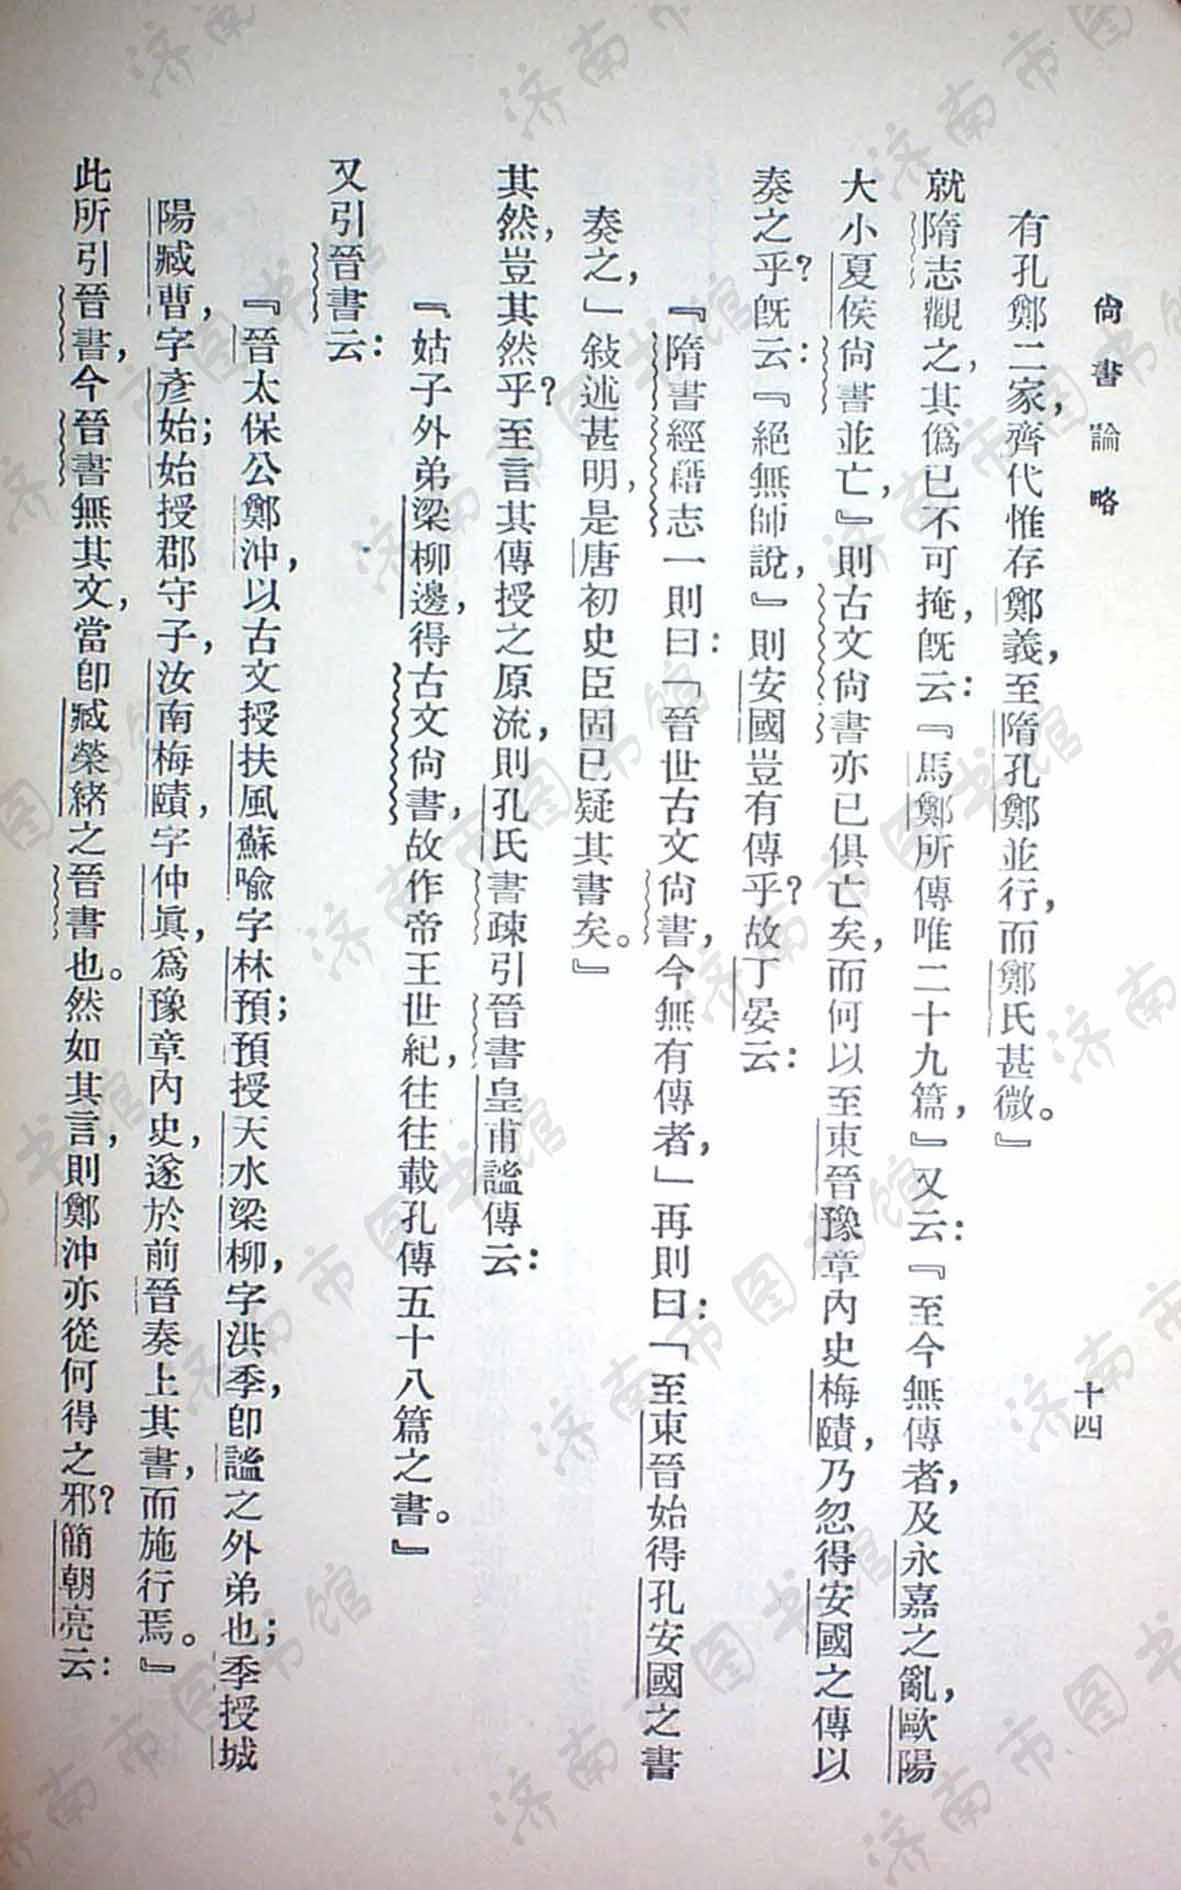 尙書論略
十四
有孔鄭二家，齊代惟存鄭義，至隋孔鄭並行，而鄭氏甚微。』
就隋志觀之，其僞已不可掩，旣云：『馬鄭所傳唯二十九篇，』又云：『至今無傳者，及永嘉之亂，歐陽
大小夏侯尙書並亡，』則古文尙書亦已俱亡矣，而何以至東晉豫章內史梅賾，乃忽得安國之傳以
奏之乎？旣云：『絕無師說，』則安國豈有傳乎？故丁晏云：
『隋書經籍志一則曰：「晉世古文尙書，今無有傳者，」再則曰：「至東晉始得孔安國之書
奏之，」敍述甚明，是唐初史臣固已疑其書矣。』
其然，豈其然乎？至言其傳授之原流，則孔氏書疎引晉書皇甫謐傳云：
『姑子外弟梁柳邊，得古文尙書，故作帝王世紀，往往載孔傳五十八篇之書。』
又引晉書云：
『晉太保公鄭沖，以古文授扶風蘇喩字林預；預授天水梁柳，字洪季，卽謐之外弟也；季授城
陽臧曹，字彥始；始授郡守子，汝南梅賾，字仲眞，爲豫章內史，遂於前晉奏上其書，而施行焉。』
此所引晉書，今晉書無其文，當卽臧榮緖之晉書也。然如其言，則鄭沖亦從何得之邪？簡朝亮云：
济南市图书馆